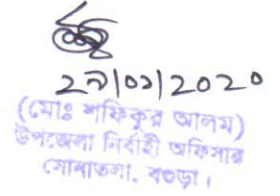 ২৯|০১|২০২০
(মোঃ শফিকুর আলম)
উপজেলা নির্বাহী অফিসার
সোনাতলা, বগুড়া।